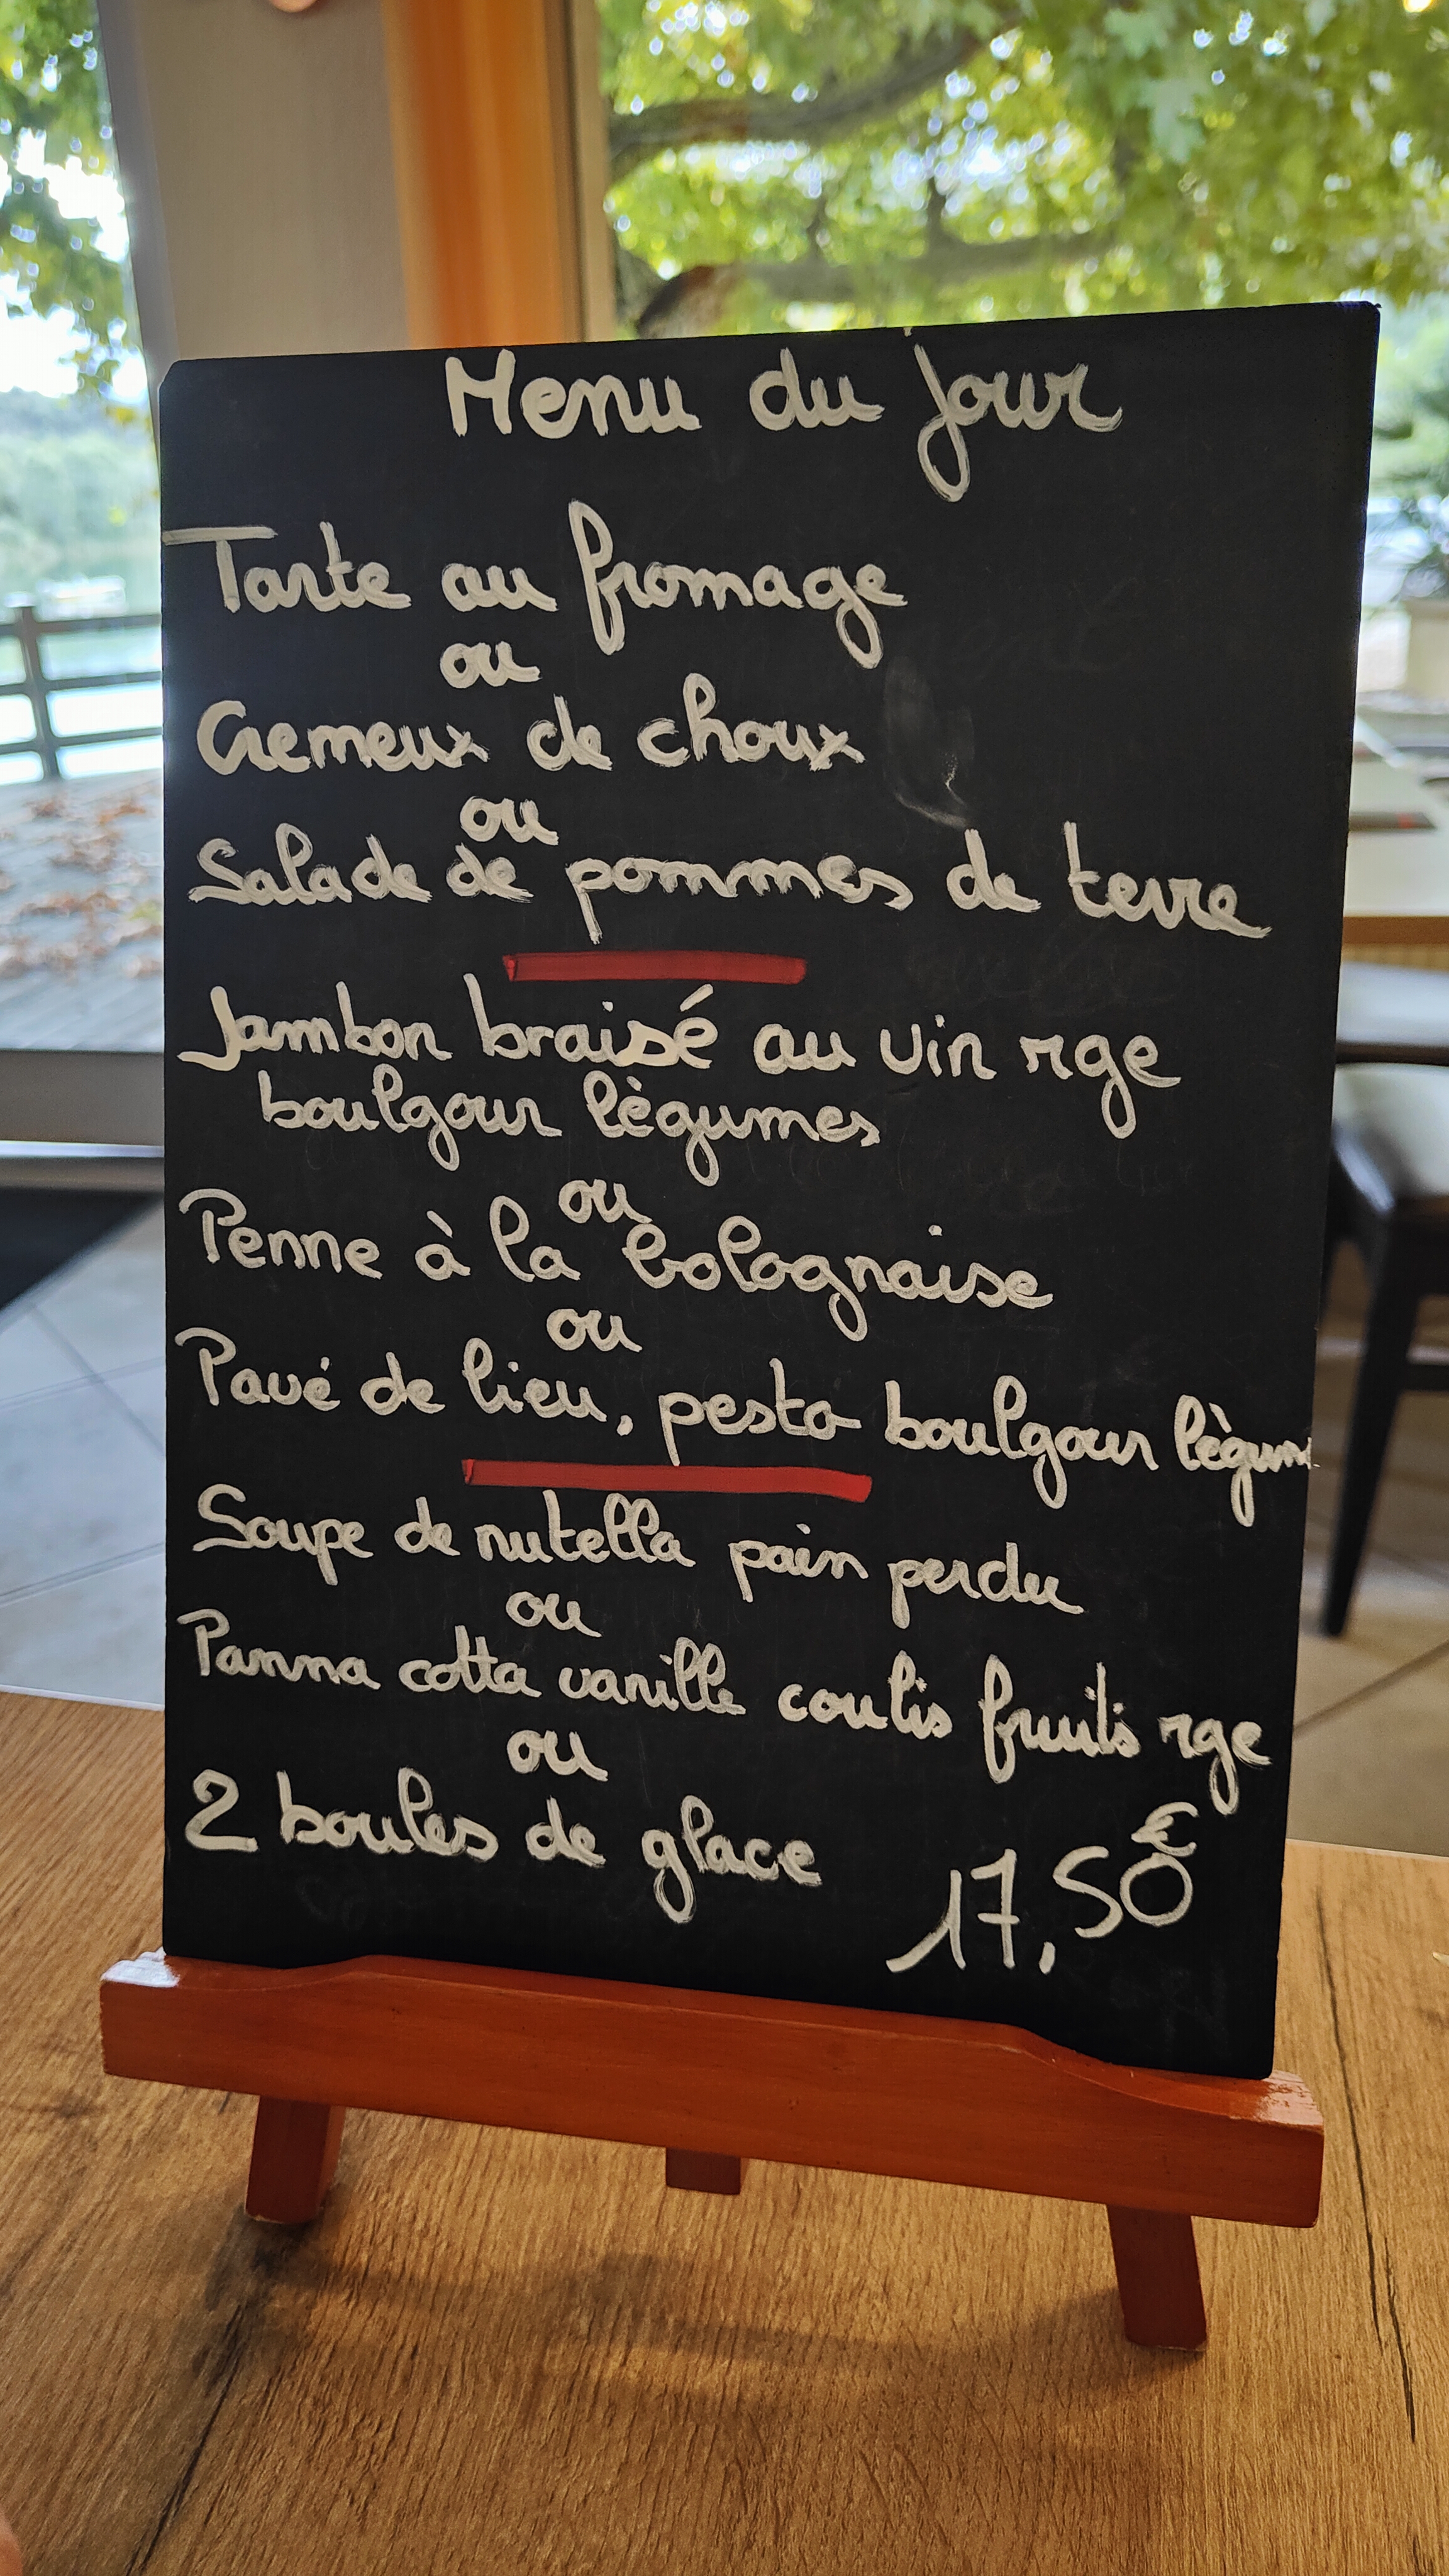 Menu du jour
Tarte au fromage
ou
Cremeux de choux
ou
Salade de pommes de terre
Jambon braisé au vin rge
boulgour lègumes
ou
Penne à la bolognaise
ou
Pavé de lieu, pesto boulgour lègum
Soupe de nutella pain perdu
ou
Panna cotta vanille coulis fruits rge
ou
2 boules de glace
17,50€